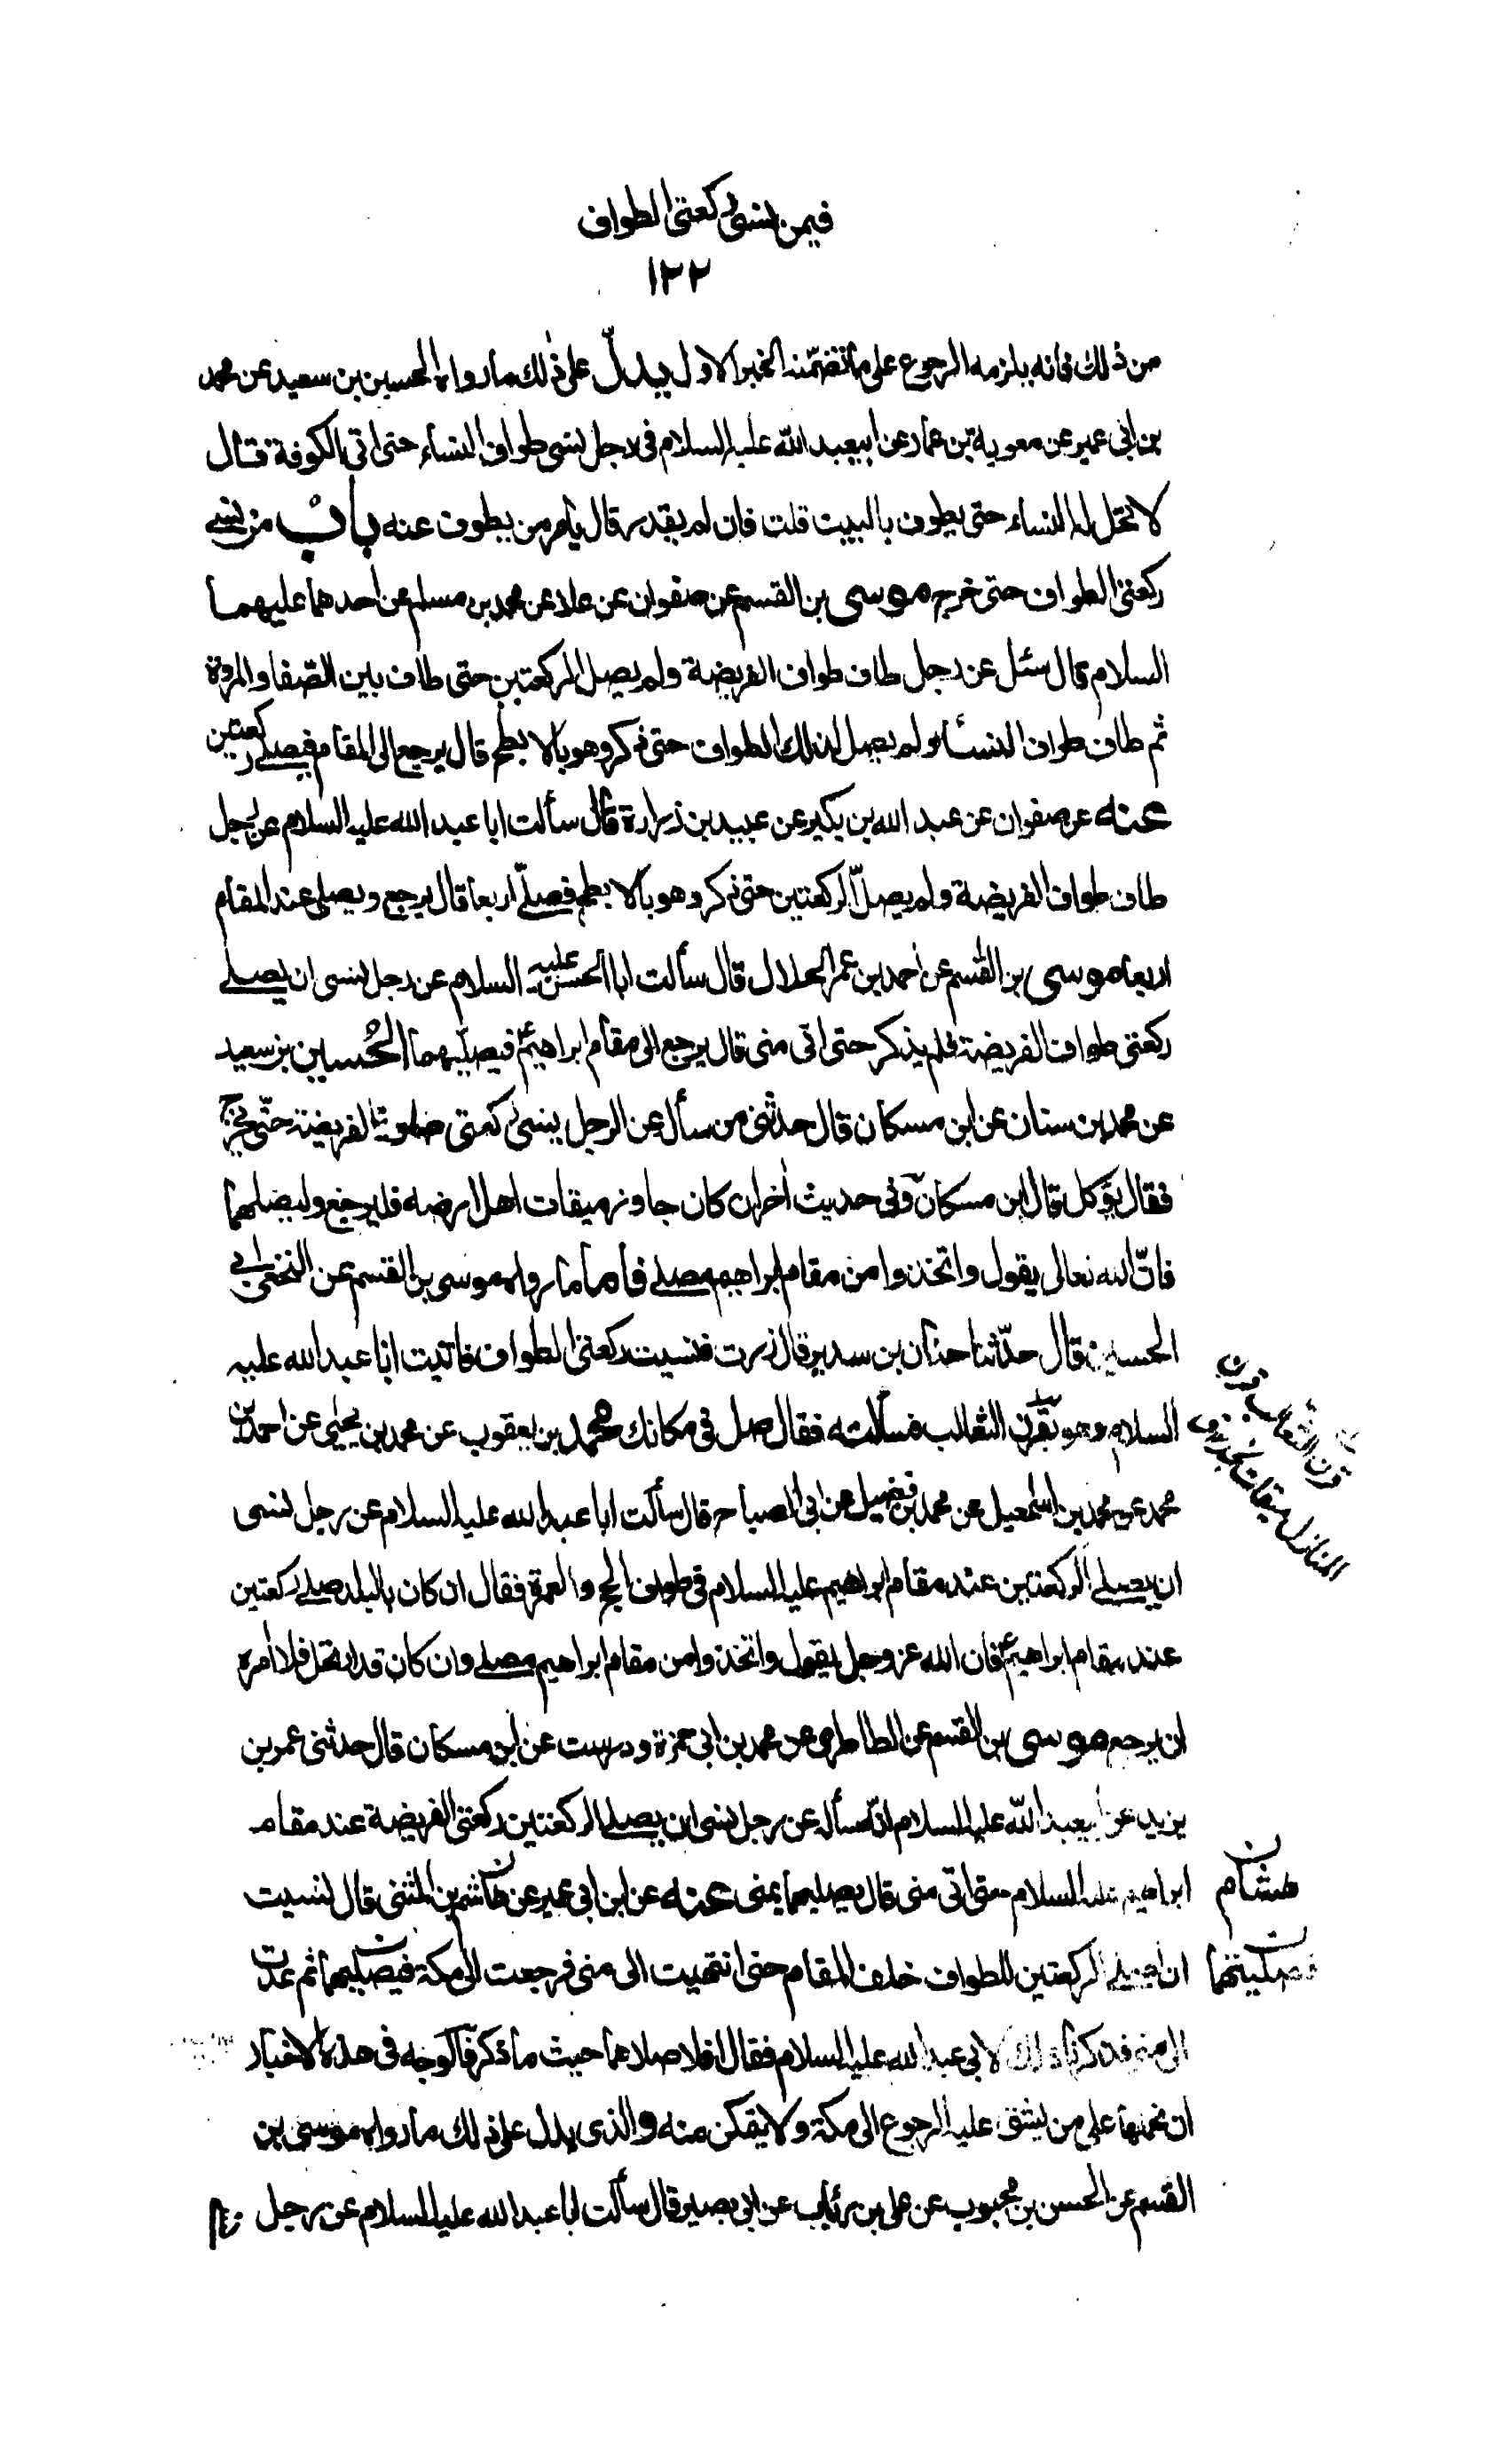 فيمن نسى ركعتى الطواف
١٢٢
من ذلك فانه يلزمه الرجوع على ما تضمّنه الخبر الاول يدلّ على ذلك ما رواه الحسين بن سعيد عن محمد
بن ابى عمير عن معوية بن عمار عن ابيعبد الله عليه السلام فى رجل نسى طواف النساء حتى اتى الكوفة قال
لا تحل له النساء حتى يطوف بالبيت قلت فان لم يقدر قال يأمر من يطوف عنه باب من نسى
ركعتى الطواف حتى خرج موسى بن القسم عن صفوان عن علا عن محمد بن مسلم عن احدهما عليهما
السلام قال سئل عن رجل طاف طواف الفريضة ولم يصل الركعتين حتى طاف بين الصّفا والمروة
ثم طاف طواف النساء ولم يصل لذلك الطواف حتى ذكر وهو بالابطح قال يرجع الى المقام فيصلى ركعتين
عنه عن صفوان عن عبد الله بن بكير عن عبيد بن زرارة قال سألت ابا عبد الله عليه السلام عن رجل
طاف طواف الفريضة ولم يصلّ الركعتين حتى ذكر وهو بالابطح فصلّى اربعا قال يرجع ويصلى عند المقام
اربعا موسى بن القسم عن احمد بن عمر الحلال قال سألت ابا الحسن عليه السلام عن رجل نسى ان يصلى
ركعتى طواف الفريضة فلم يذكر حتى اتى منى قال يرجع الى مقام ابراهيمؑ فيصلّيهما الحُسين بن سعيد
عن محمد بن سنان عن ابن مسكان قال حدثنى من سأل عن الرجل ينسى ركعتى طواف الفريضة حتّى يخرج
فقال يؤكل قال ابن مسكان وفى حديث اخر ان كان جاوز ميقات اهل ارضه فليرجع وليصلهما
فانّ الله تعالى يقول واتخذوا من مقام ابراهيم مصلى فأما ما رواه موسى بن القسم عن النخعى ابى
الحسين قال حدّثنا حنان بن سدير قال زرت فنسيت ركعتى الطواف فاتيت ابا عبد الله عليه
السلام وهو بقرن الثعالب فسألته فقال صل فى مكانك محمد بن يعقوب عن محمد بن يحيى عن احمد بن
محمد عن محمد بن اسمعيل عن محمد بن فضيل عن ابى الصباح قال سألت ابا عبد الله عليه السلام عن رجل نسى
ان يصلى الركعتين عند مقام ابراهيم عليه السلام فى طواف الحج والعمرة فقال ان كان بالبلد صلى ركعتين
عند مقام ابراهيمؑ فان الله عز وجل يقول واتخذوا من مقام ابراهيم مصلى وان كان قد ارتحل فلا امره
ان يرجع موسى بن القسم عن الطاطرى عن محمد بن ابى حمزة ودرست عن ابن مسكان قال حدثنى عمر بن
يزيد عن ابيعبد الله عليه السلام انّه سأله عن رجل نسى ان يصلى الركعتين ركعتى الفريضة عند مقام
ابراهيم عليه السلام حتى اتى منى قال يصليهما بمنى عنه عن ابن ابى عمير عن هاشم بن المثنى قال نسيت
ان اصلى الركعتين للطواف خلف المقام حتى انتهيت الى منى فرجعت الى مكة فيصليهما ثم عدت
الى منى فذكرنا ذلك لابى عبد الله عليه السلام فقال افلا صلاهما حيث ما ذكر فالوجه فى هذه الاخبار
ان نحملها على من يشق عليه الرجوع الى مكة ولا يتمكن منه والذى يدل على ذلك ما رواه موسى بن
القسم عن الحسن بن محبوب عن على بن رئاب عن ابى بصير قال سألت ابا عبد الله عليه السلام عن رجل
قرن الثعالب
قرن
المنازل ميقات نجد
هشام ن
فصليتهما ن